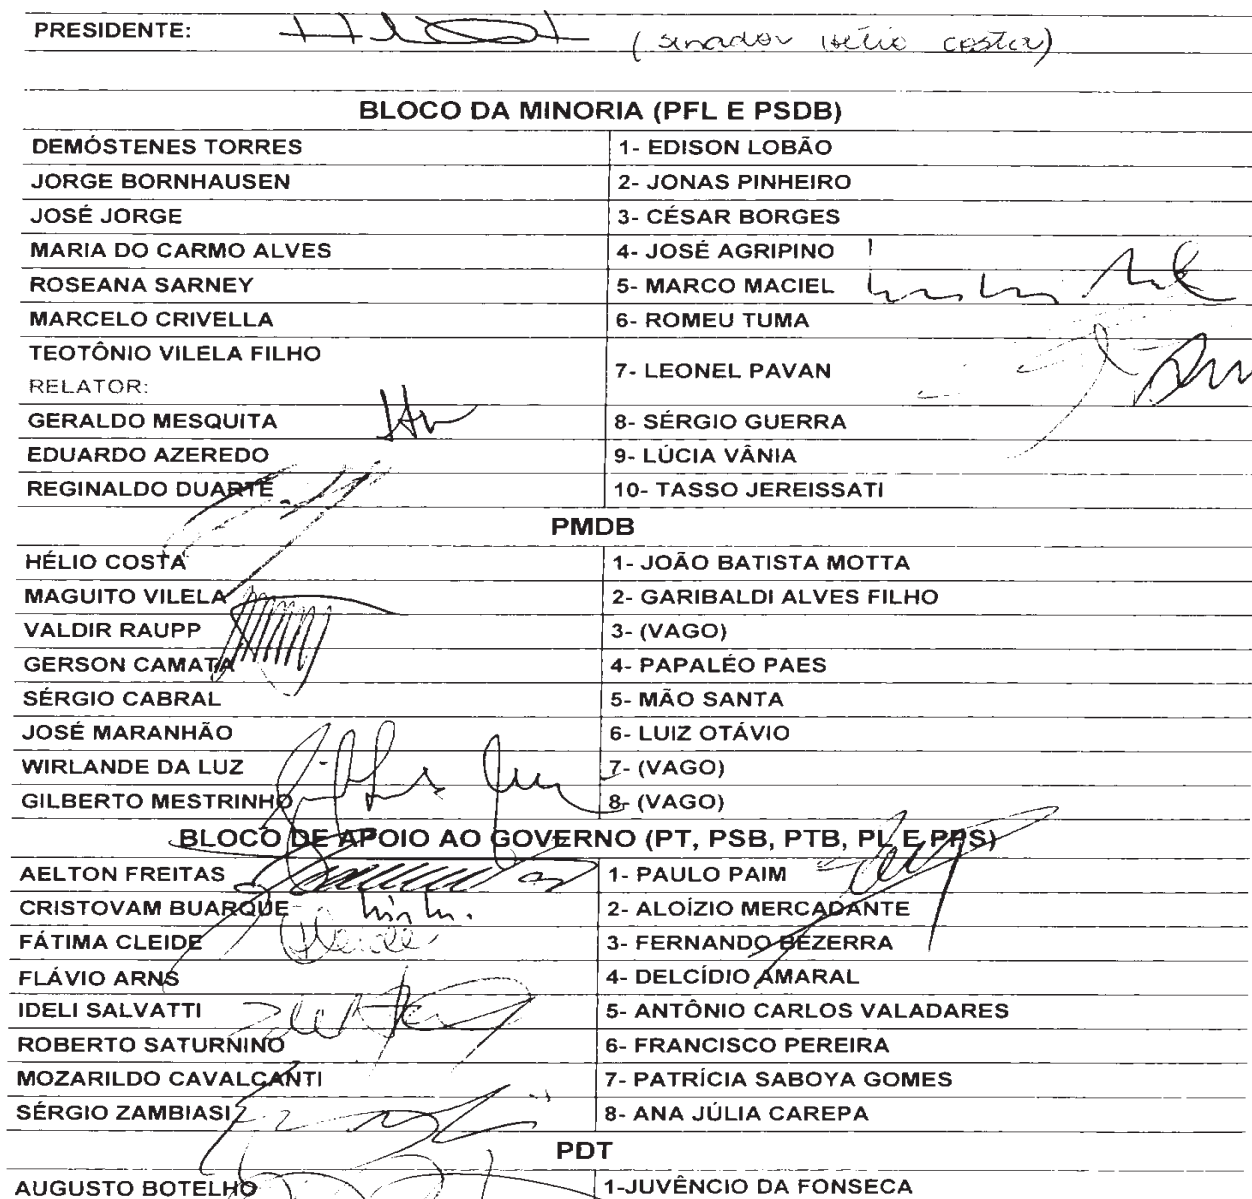 PRESIDENTE: (senador Hélio Costa)
BLOCO DA MINORIA (PFL E PSDB)
DEMÓSTENES TORRES 1- EDISON LOBÃO
JORGE BORNHAUSEN 2- JONAS PINHEIRO
JOSÉ JORGE 3- CÉSAR BORGES
MARIA DO CARMO ALVES 4- JOSÉ AGRIPINO
ROSEANA SARNEY 5- MARCO MACIEL
MARCELO CRIVELLA 6- ROMEU TUMA
TEOTÔNIO VILELA FILHO 7- LEONEL PAVAN
RELATOR:
GERALDO MESQUITA 8- SÉRGIO GUERRA
EDUARDO AZEREDO 9- LÚCIA VÂNIA
REGINALDO DUARTE 10- TASSO JEREISSATI
PMDB
HÉLIO COSTA 1- JOÃO BATISTA MOTTA
MAGUITO VILELA 2- GARIBALDI ALVES FILHO
VALDIR RAUPP 3- (VAGO)
GERSON CAMATA 4- PAPALÉO PAES
SÉRGIO CABRAL 5- MÃO SANTA
JOSÉ MARANHÃO 6- LUIZ OTÁVIO
WIRLANDE DA LUZ 7- (VAGO)
GILBERTO MESTRINHO 8- (VAGO)
BLOCO DE APOIO AO GOVERNO (PT, PSB, PTB, PL E PPS)
AELTON FREITAS 1- PAULO PAIM
CRISTOVAM BUARQUE 2- ALOÍZIO MERCADANTE
FÁTIMA CLEIDE 3- FERNANDO BEZERRA
FLÁVIO ARNS 4- DELCÍDIO AMARAL
IDELI SALVATTI 5- ANTÔNIO CARLOS VALADARES
ROBERTO SATURNINO 6- FRANCISCO PEREIRA
MOZARILDO CAVALCANTI 7- PATRÍCIA SABOYA GOMES
SÉRGIO ZAMBIASI 8- ANA JÚLIA CAREPA
PDT
AUGUSTO BOTELHO 1-JUVÊNCIO DA FONSECA